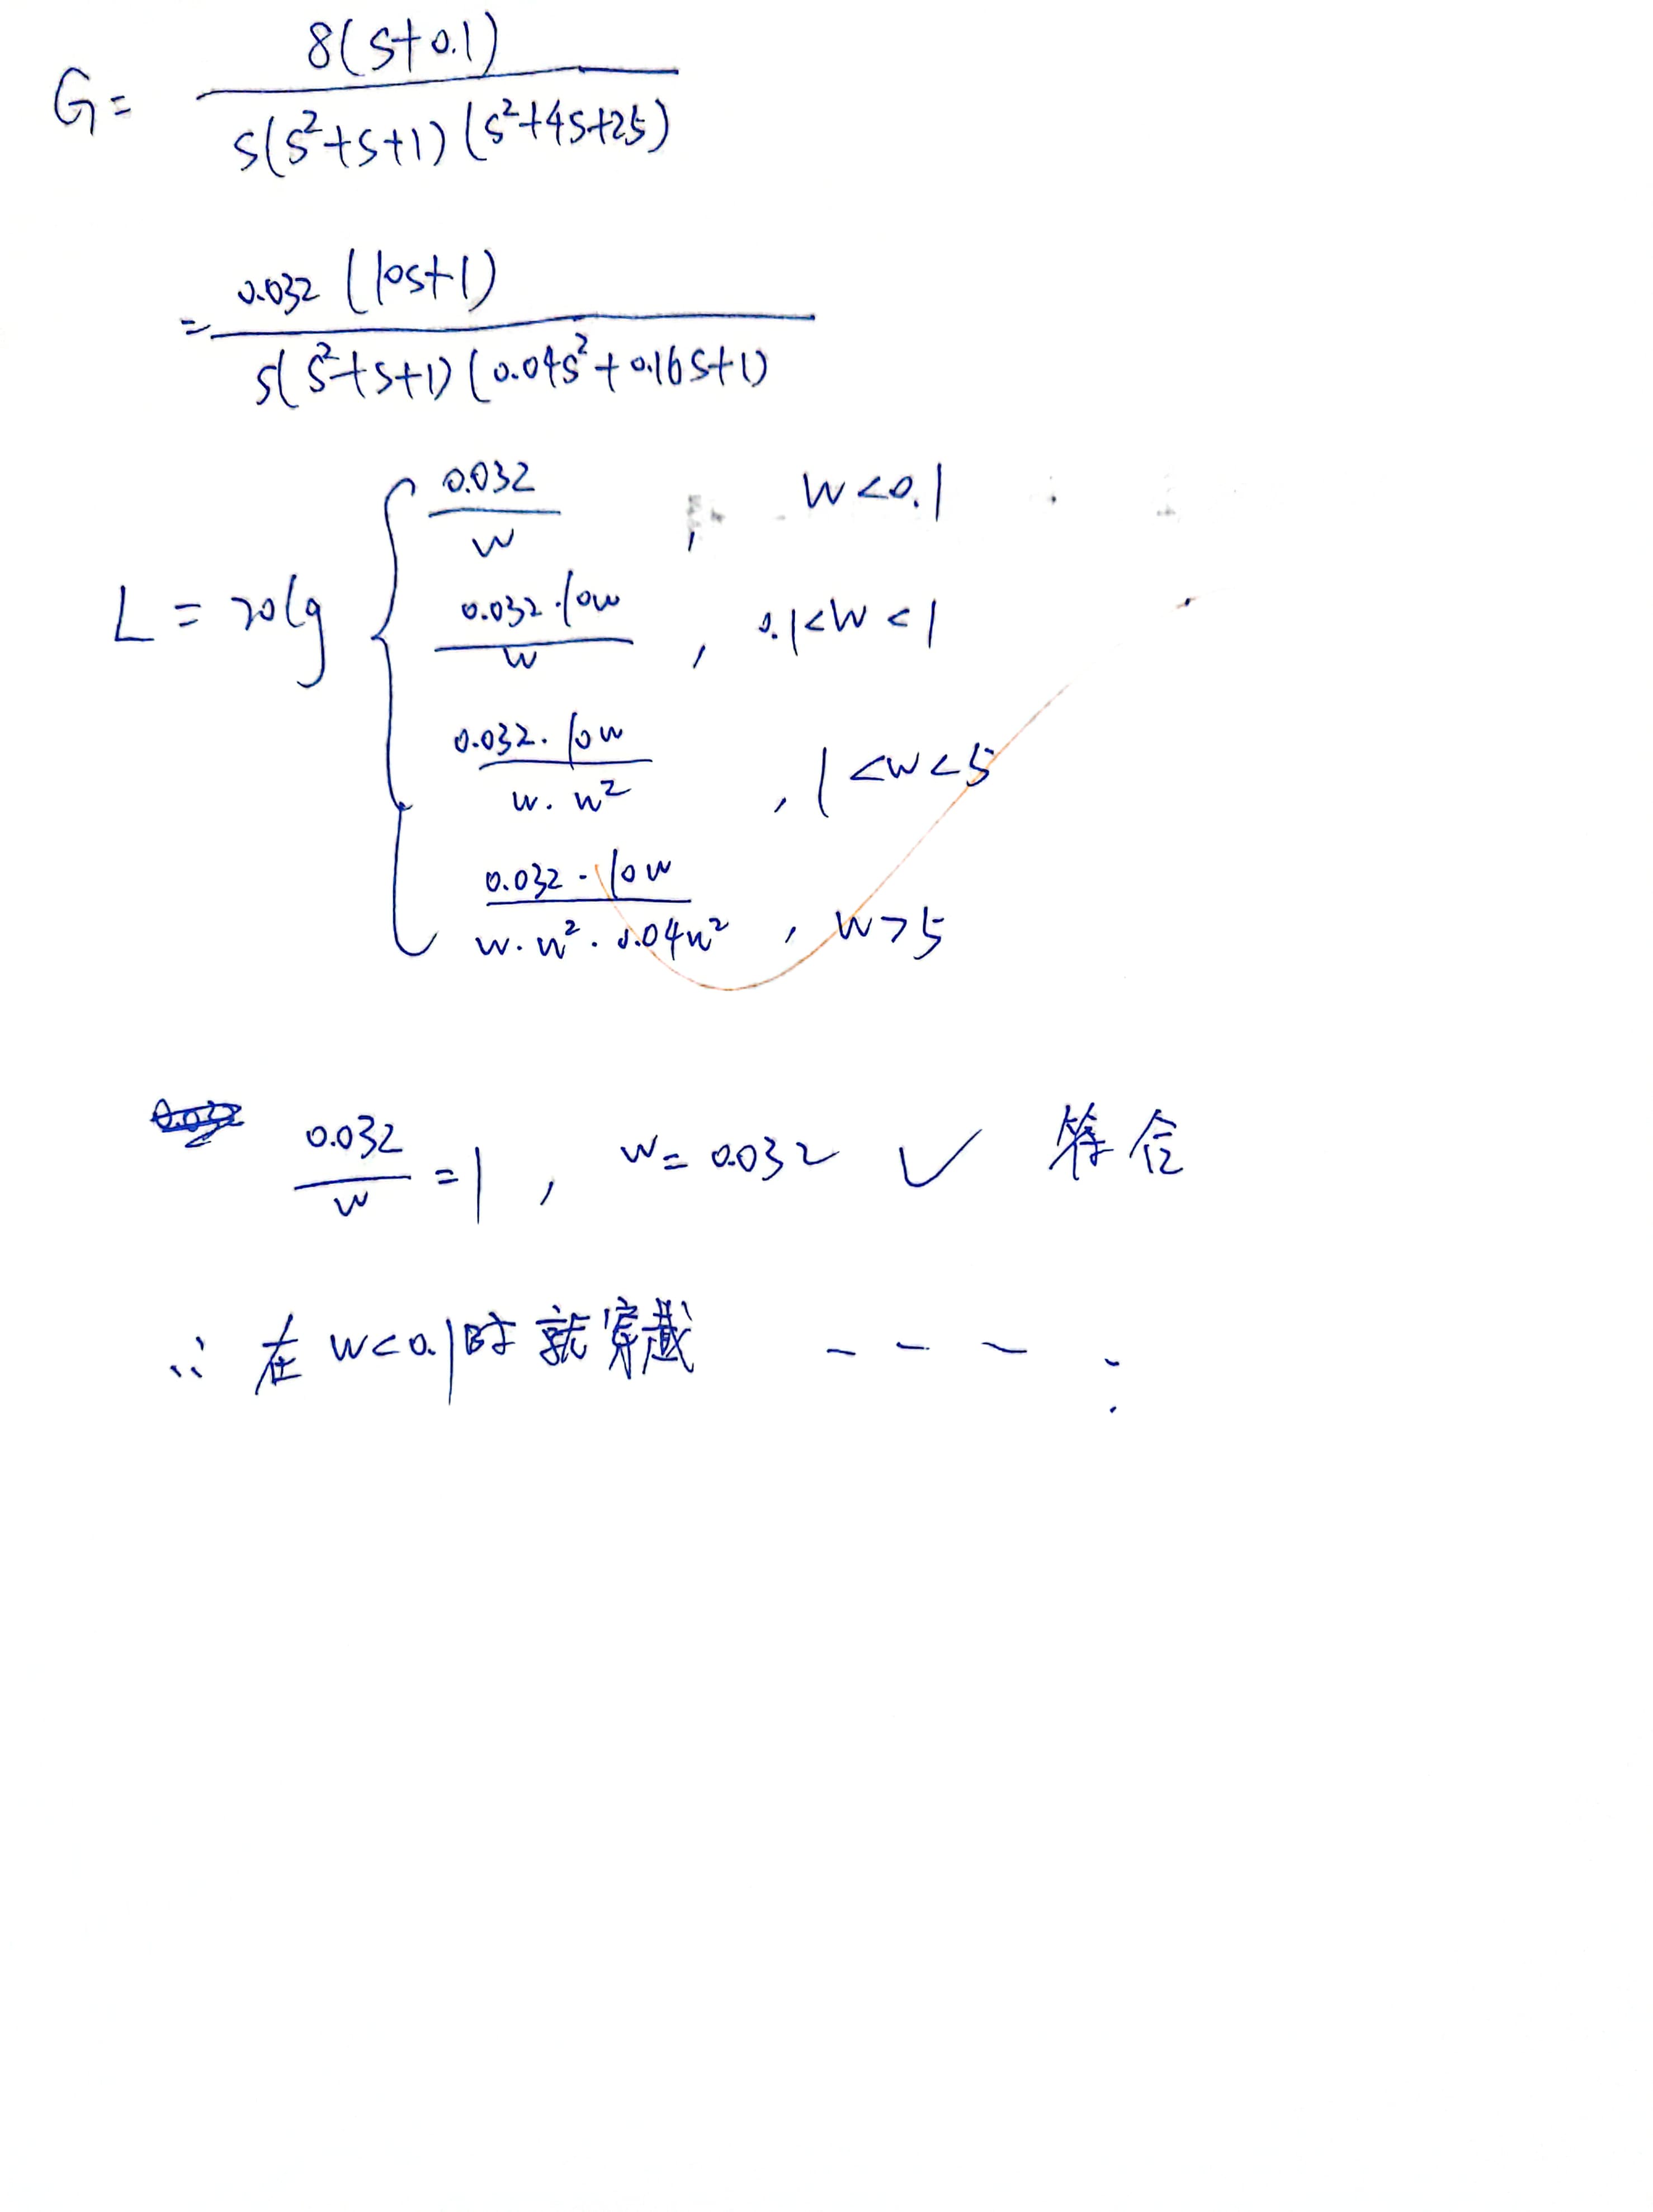 G = 8(s+0.1) / s(s²+s+1)(s²+4s+25)
= 0.032(10s+1) / s(s²+s+1)(0.04s²+0.16s+1)
L = 20lg { 0.032 / w , w<0.1
0.032·10w / w , 0.1<w<1
0.032·10w / w·w² , 1<w<5
0.032·10w / w·w²·0.04w² , w>5
0.032 / w = 1 , w = 0.032 ✓ 符合
∴ 在 w<0.1时就穿越